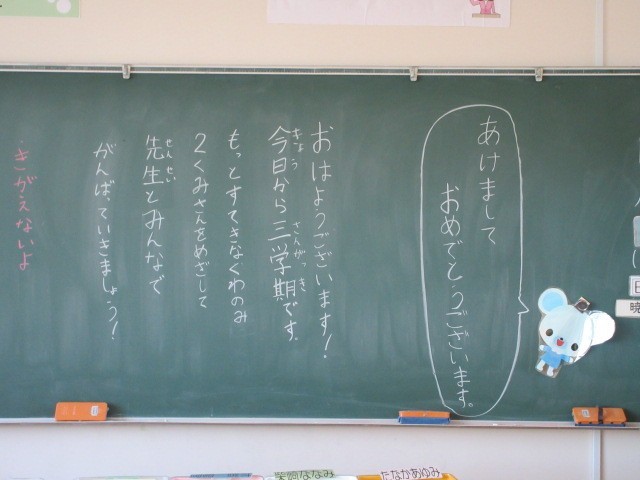 あけまして
おめでとうございます。
おはようございます！
今日から三学期です。
きょう
さんがっき
もっとすてきなくわのみ
2くみさんをめざして
先生とみんなで
せんせい
がんばっていきましょう！
きがえないよ
たなかあゆみ